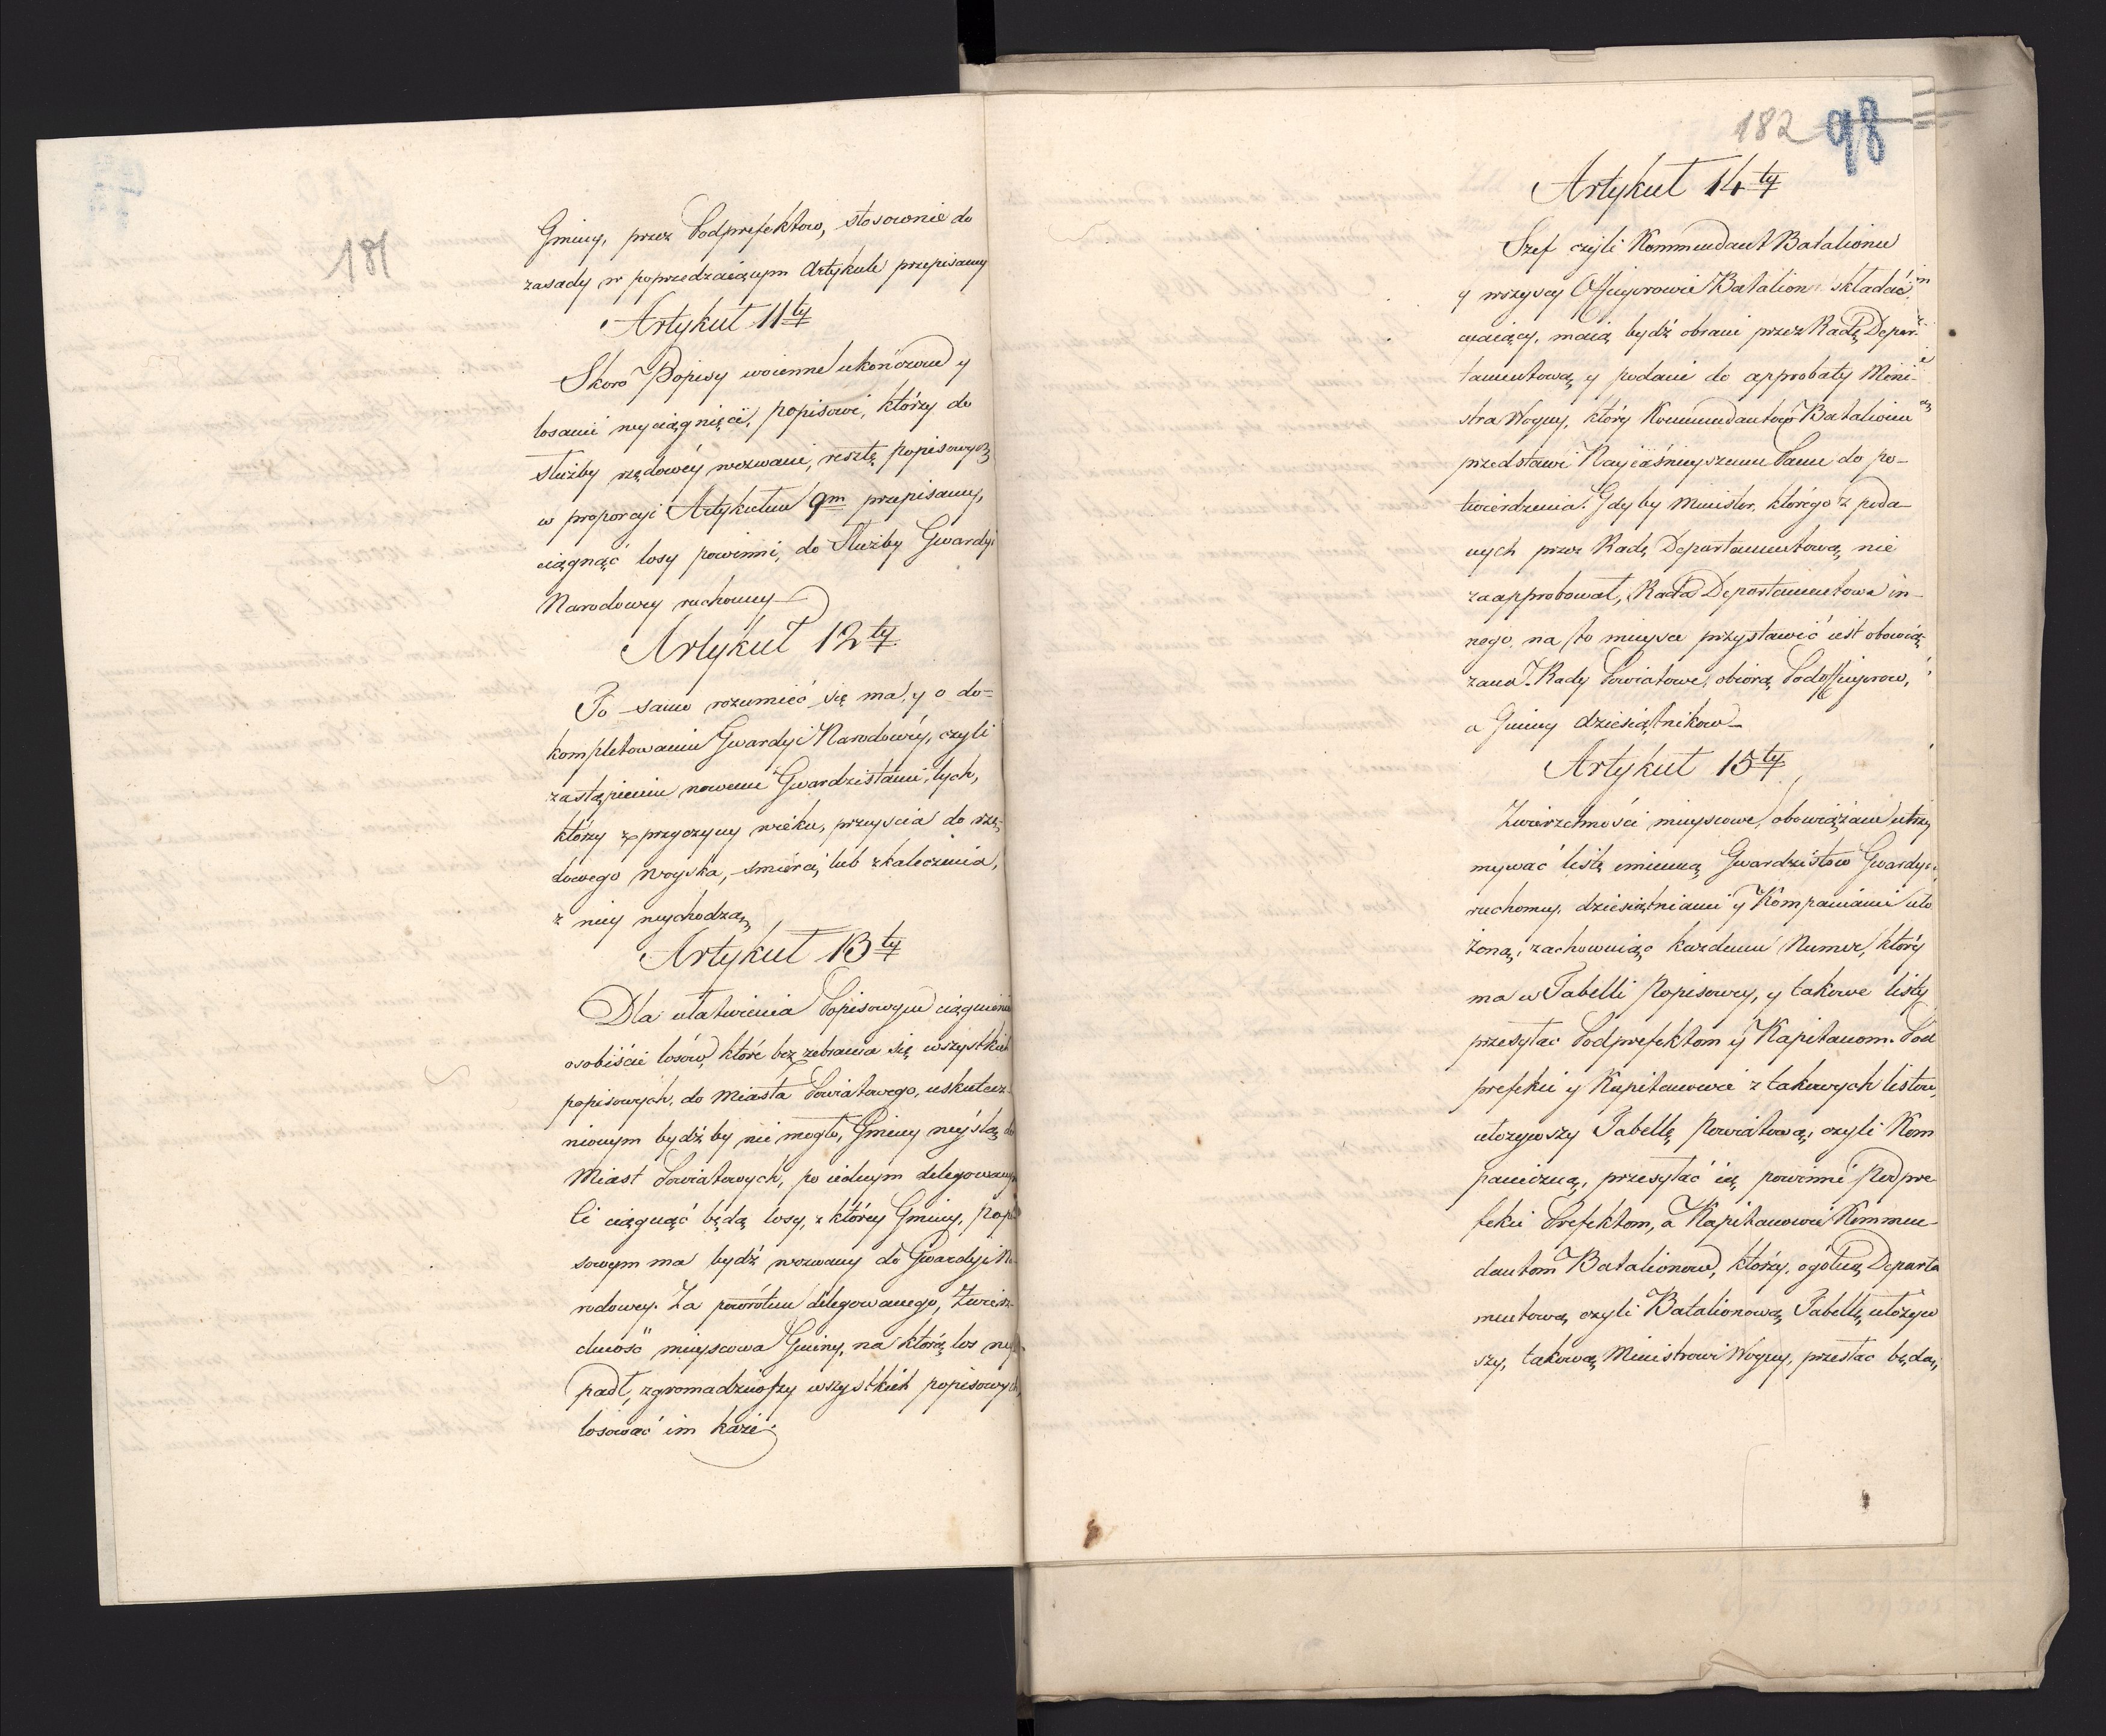 181
Gminy, przez Podprefektow, stosownie do
zasady w poprzedzaiącym Artykule przepisaney
Artykuł 11ty
Skoro Popisy woienne ukończone y
losami wyciągnięci, popisowi, którzy do
służby rządowéy wezwani, resztę popisowych
w proporcyi Artykułem 9m przepisaney,
ciągnąć losy powinni, do Służby Gwardyi
Narodowey ruchomey
Artykuł 12ty
To samo rozumieć się ma, y o do=
kompletowaniu Gwardyi Narodowéy, czyli
zastąpieniu nowemi Gwardzistami, tych,
którzy z przyczyny wieku, przeyscia do rzą-
dowego woyska, smierci, lub skaleczenia,
z niey wychodzą
Artykuł 13ty
Dla ułatwienia Popisowym ciągnienia
osobiście losów, które bez zebrania się wszystkich
popisowych, do Miasta Powiatowego, uskutecz-
nionym bydź by nie mogło, Gminy wyślą do
Miast Powiatowych, po iednym delegowanym
Ci ciągnąć będą losy, z którey Gminy, popi
sowym ma bydź wezwany do Gwardyi Na-
rodowey. Za powrótem delegowanego, Zwierz-
chność mieyscowa Gminy, na którą los wy-
padł, zgromadziwszy wszystkich popisowych,
losować im każe.
182 98
Artykuł 14ty
Szef czyli Kommendant Batalionu
y wszyscy Officyerowie Batalion składać
maiący, maią bydź obrani przez Radę Depar-
tamentową y podani do approbaty Mini-
stra Woyny, który Kommendantów Batalionu
przedstawi Nayiaśnieyszemu Panu do po-
twierdzenia. Gdyby Minister, którego z poda-
nych przez Radę Departamentową nie
zaapprobował, Rada Departamentowa in-
nego na to mieysce przystawić iest obowią-
zana. Rady Powiatowe, obiorą Podofficyerow,
a Gminy dziesiątnikow
Artykuł 15ty
Zwierzchności mieyscowe, obowiązane utrzy
mywać listę imienną Gwardzistow Gwardyi
ruchomey, dziesiątniami y Kompaniami uło
żoną, zachowuiąc każdemu Numer, który
ma w Tabelli Popisowey, y takowe listy
przesyłac Podprefektom y Kapitanom. Pod
prefekci y Kapitanowie z takowych listow,
ułożywszy Tabellę Powiatową, czyli Kom
paniczną, przesyłać ią powinni Podpre
fekci Prefektom, a Kapitanowie Kommen-
dantom Batalionow, którzy, ogólną Departa
mentową czyli Batalionową Tabellę, ułożyw
szy, takową Ministrowi Woyny, przesłac będą,